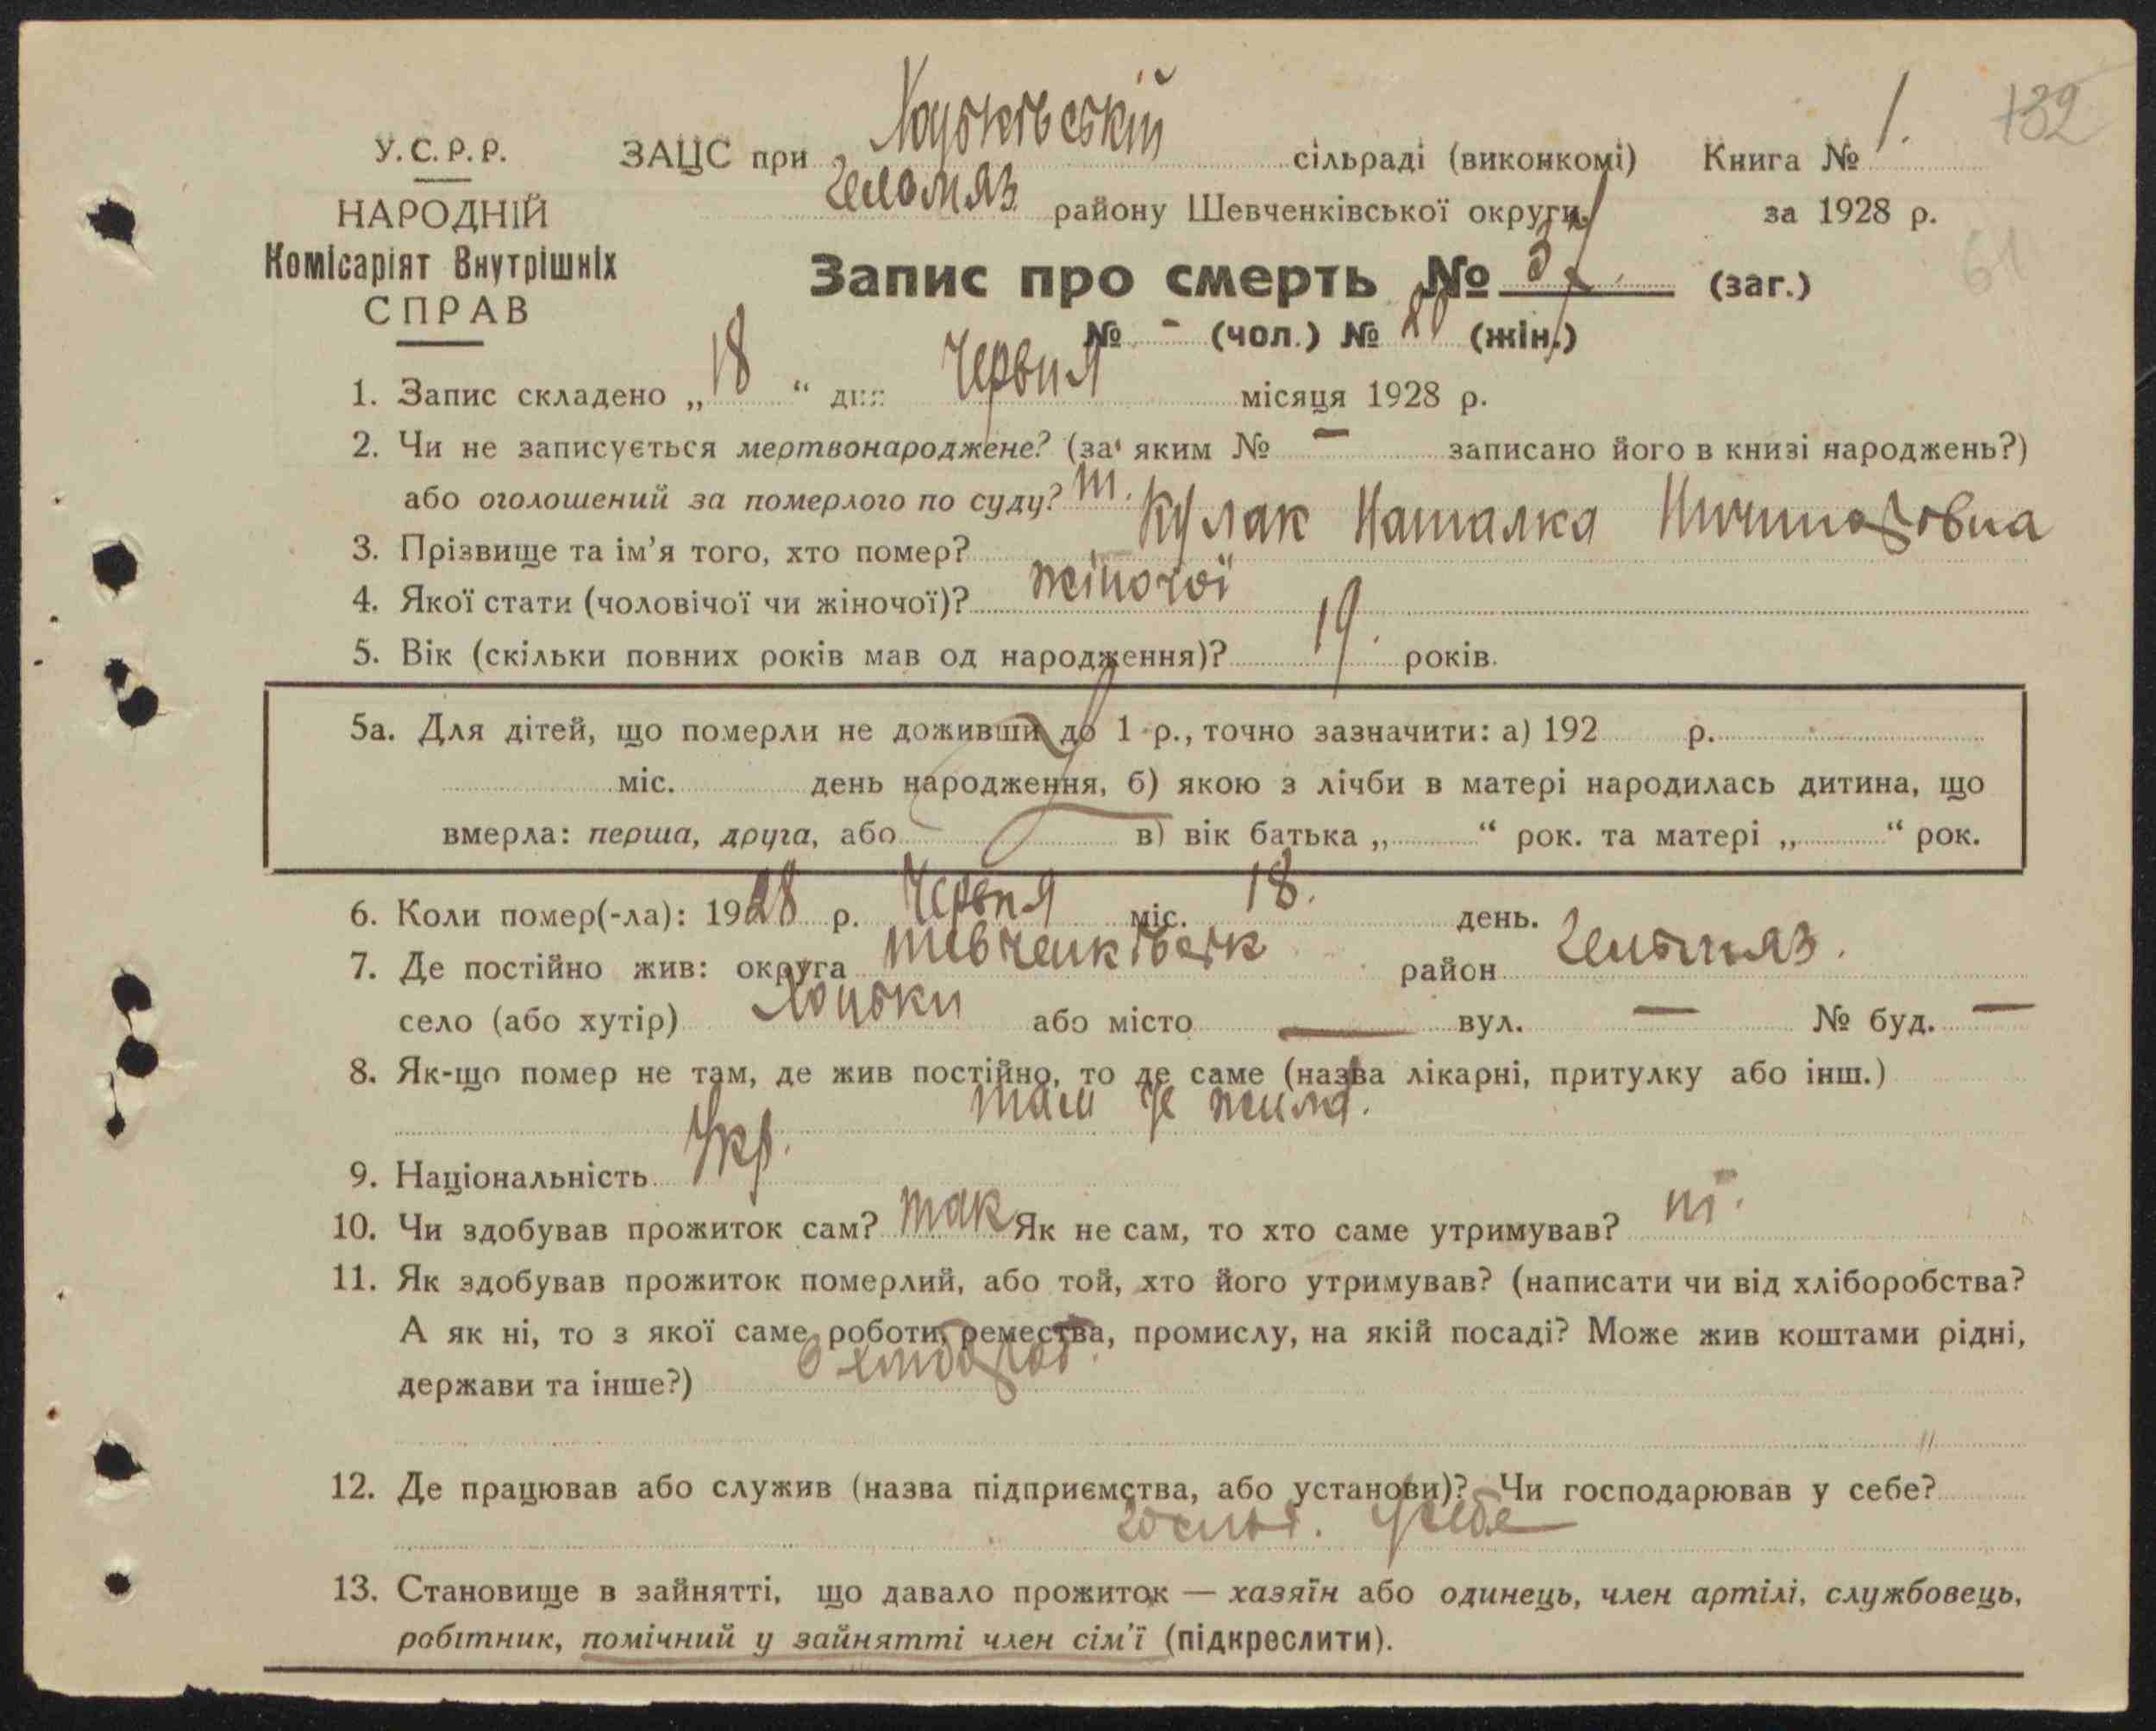 132
У.С.Р.Р.
НАРОДНІЙ
Комісаріят Внутрішніх
СПРАВ
ЗАЦС при Хоцьківській сільраді (виконкомі) Книга № 1.
Гельмяз району Шевченківської округи за 1928 р.
61
Запис про смерть № 37. (заг.)
№ - (чол.) № 20 (жін.)
1. Запис складено „18“ дня Червня місяця 1928 р.
2. Чи не записується мертвонароджене? (за яким № — записано його в книзі народжень?)
або оголошений за померлого по суду?
3. Прізвище та ім’я того, хто помер? Кулак Наталка Ничипоровна
4. Якої стати (чоловічої чи жіночої)? жіночої
5. Вік (скільки повних років мав од народження)? 19. років.
5а. Для дітей, що померли не доживши до 1 р., точно зазначити: а) 192 р.
міс. день народження, б) якою з лічби в матері народилась дитина, що
вмерла: перша, друга, або в) вік батька „ “ рок. та матері „ “ рок.
6. Коли помер(-ла): 1928 р. Червня міс. 18. день.
7. Де постійно жив: округа Шевченківськ район Гельмяз.
село (або хутір) Хоцьки або місто — вул. — № буд. —
8. Як-що помер не там, де жив постійно, то де саме (назва лікарні, притулку або інш.)
там де жила.
9. Національність Укр.
10. Чи здобував прожиток сам? так Як не сам, то хто саме утримував? ні.
11. Як здобував прожиток померлий, або той, хто його утримував? (написати чи від хліборобства?
А як ні, то з якої саме роботи, ремества, промислу, на якій посаді? Може жив коштами рідні,
держави та інше?) з хлібороб.
12. Де працював або служив (назва підприємства, або установи)? Чи господарював у себе?
у себе
13. Становище в зайнятті, що давало прожиток — хазяїн або одинець, член артілі, службовець,
робітник, помічний у зайнятті член сім’ї (підкреслити).